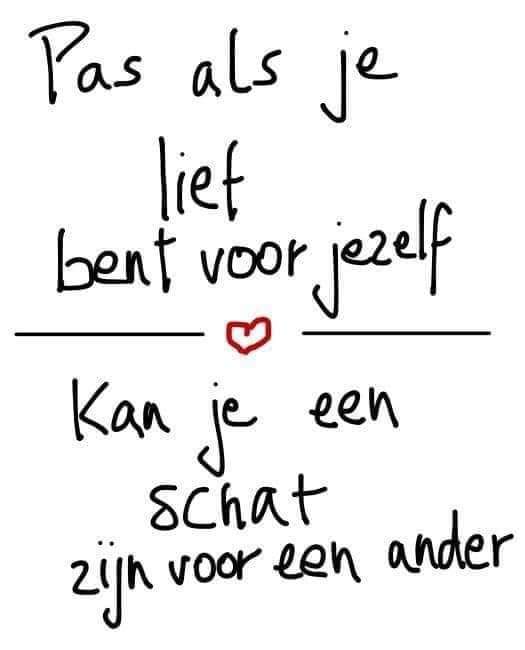 Pas als je
lief
bent voor jezelf
Kan je een
schat
zijn voor een ander